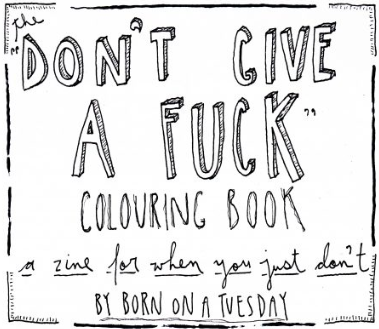 the
"DON'T GIVE
A FUCK"
COLOURING BOOK
a zine for when you just don't
BY BORN ON A TUESDAY